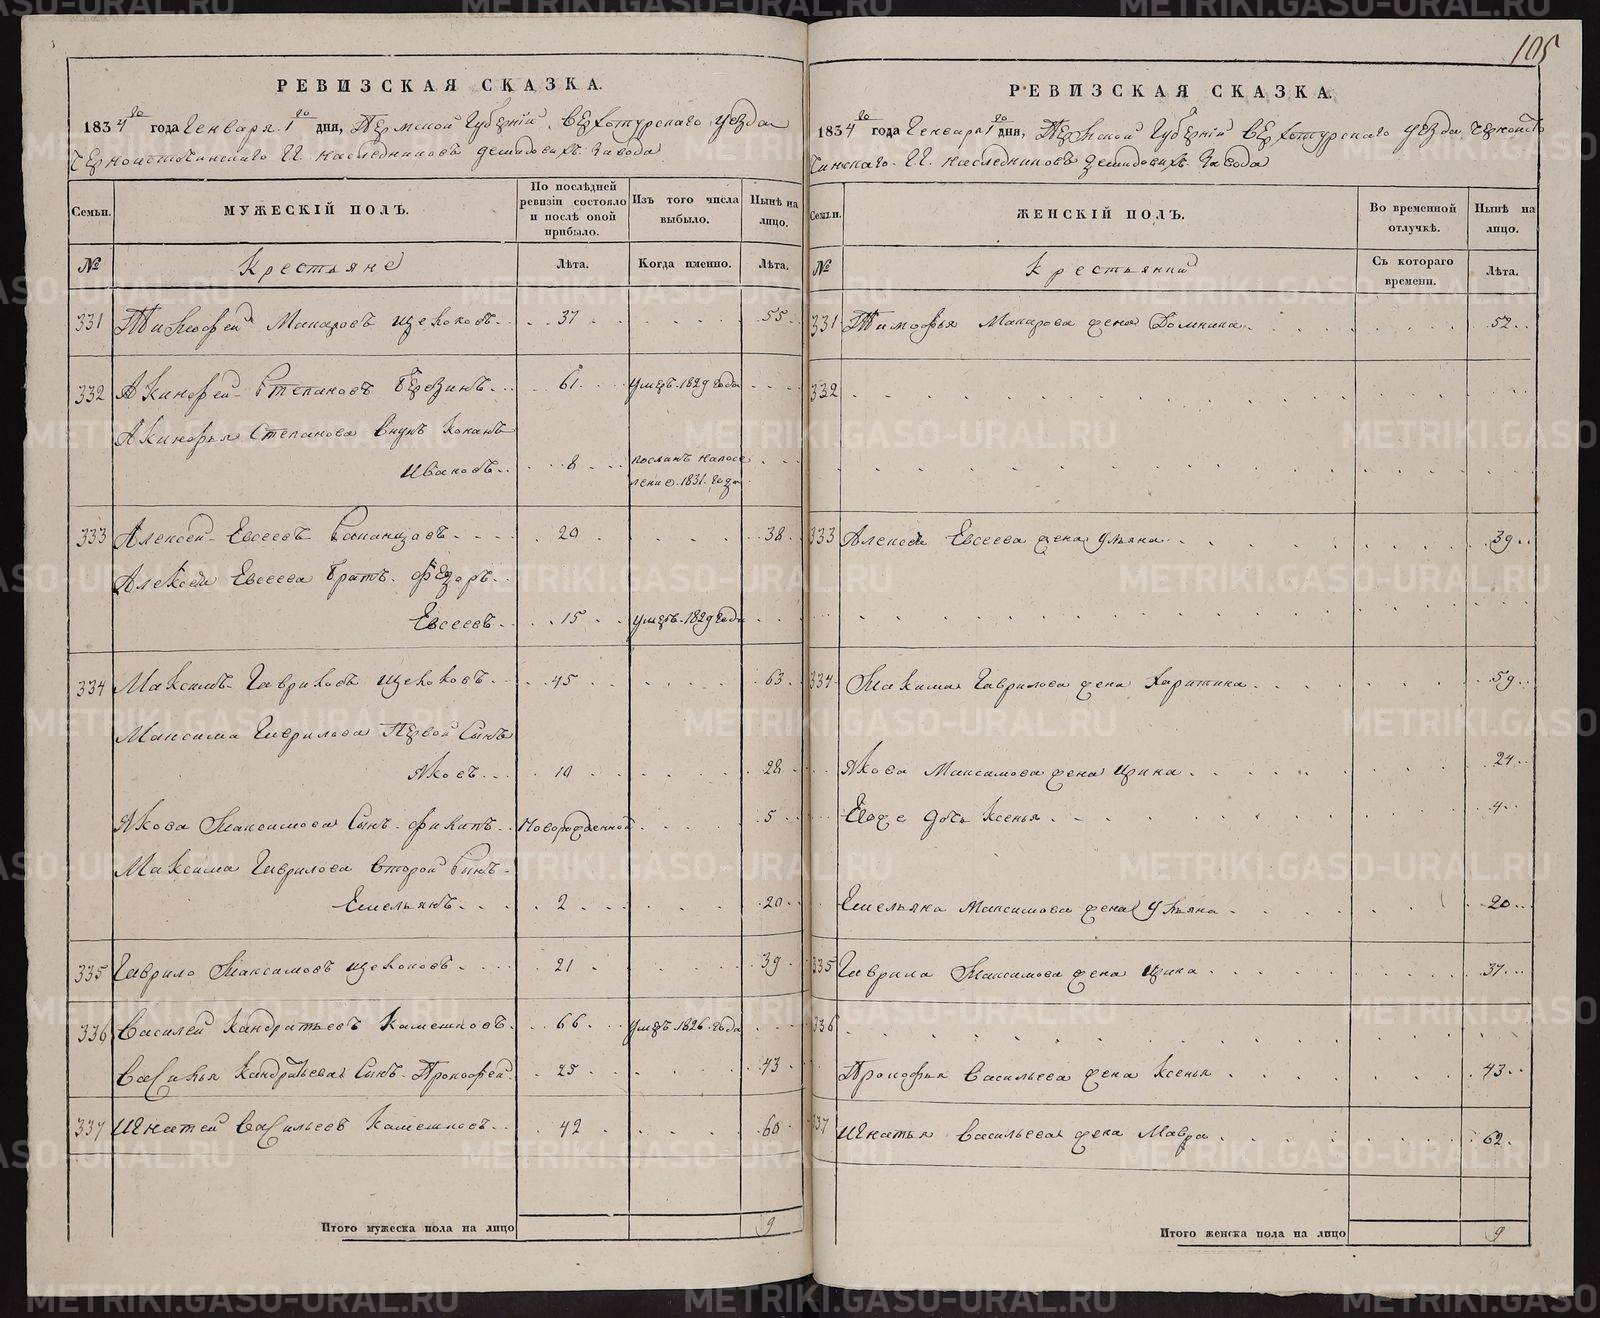 105
РЕВИЗСКАЯ СКАЗКА.
1834го года Генваря 1го дня, Пермской Губернiи, Верхотурскаго уезда
Черноисточинскаго ГГ. наследниковъ Демидовыхъ завода
Семьи. МУЖЕСКIЙ ПОЛЪ. По послѣдней ревизiи состояло и послѣ оной прибыло. Изъ того числа выбыло. Нынѣ на лицо.
№ Крестьяне Лѣта. Когда именно. Лѣта.
331 Тимофей Макаровъ Щекоковъ 37 55
332 Акинфей Степановъ Березинъ 61 умеръ 1829 года
Акинфья Степанова внукъ Конанъ
Ивановъ 8 посланъ на посе
ление 1831 года
333 Алексей Евсеевъ 20 38
Алексея Евсеева братъ Федоръ
Евсеевъ 15 умеръ 1829 года
334 Максимъ Гавриловъ Щекоковъ 45 63
Максима Гаврилова первой сынъ
Яковъ 10 28
Якова Максимова сынъ Филипъ Новорожденной 5
Максима Гаврилова второй сынъ
Емельянъ 2 20
335 Гаврило Максимовъ Щекоковъ 21 39
336 Василей Кандратьевъ Камешковъ 66 умеръ 1826 года
Василья Кандратьева сынъ Прокофей 25 43
337 Игнатей Васильевъ Камешковъ 42 60
Итого мужеска пола на лицо 9
РЕВИЗСКАЯ СКАЗКА.
1834го года Генваря 1го дня, Пермской Губернiи Верхотурскаго уезда Черноисто
чинскаго ГГ. наследниковъ Демидовыхъ завода
Семьи. ЖЕНСКIЙ ПОЛЪ. Во временной отлучкѣ. Нынѣ на лицо.
№ Крестьянки Съ котораго времени. Лѣта.
331 Тимофея Макарова жена Домнина 52
332
333 Алексея Евсеева жена Ульяна 39
334 Максима Гаврилова жена Харитина 59
Якова Максимова жена Ирина 24
Евоже дочь Ксенья 4
Емельяна Максимова жена Ульяна 20
335 Гаврила Максимова жена Ирина 37
336
Прокофья Васильева жена Ксенья 43
337 Игнатья Васильева жена Мавра 62
Итого женска пола на лицо 9
METRIKI.GASO-URAL.RU